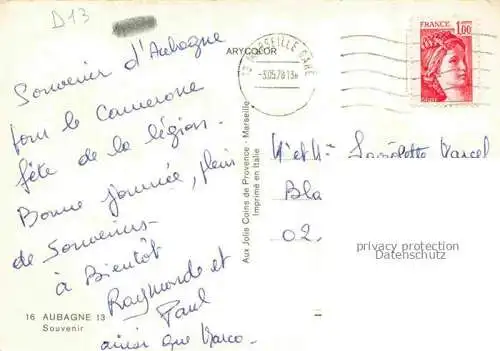 D13
ARYCOLOR
Souvenir d'Aubagne
pour le Camerone
fête de la légion.
Bonne journée, plein
de Souvenirs
à Bientôt
Raymonde et
Paul
ainsi que Marco.
16 AUBAGNE 13
Souvenir
Aux Jolis Coins de Provence - Marseille
Imprimé en Italie
13 MARSEILLE GARE
-3.05.78 18H
FRANCE
1,00
Mr et Mme Marcel
Bla
02.
privacy protection
Datenschutz